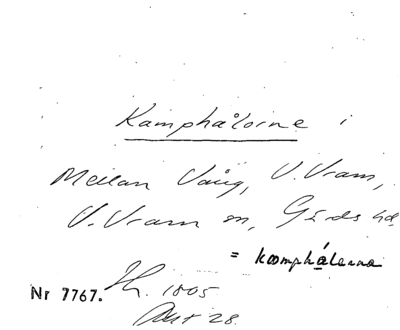 Kamphålorne i
Mellan Vång, V. Vram,
V. Vram sn, Gärds hd
= koomphålerna
Nr 7767. Th. 1805
Akt 28.